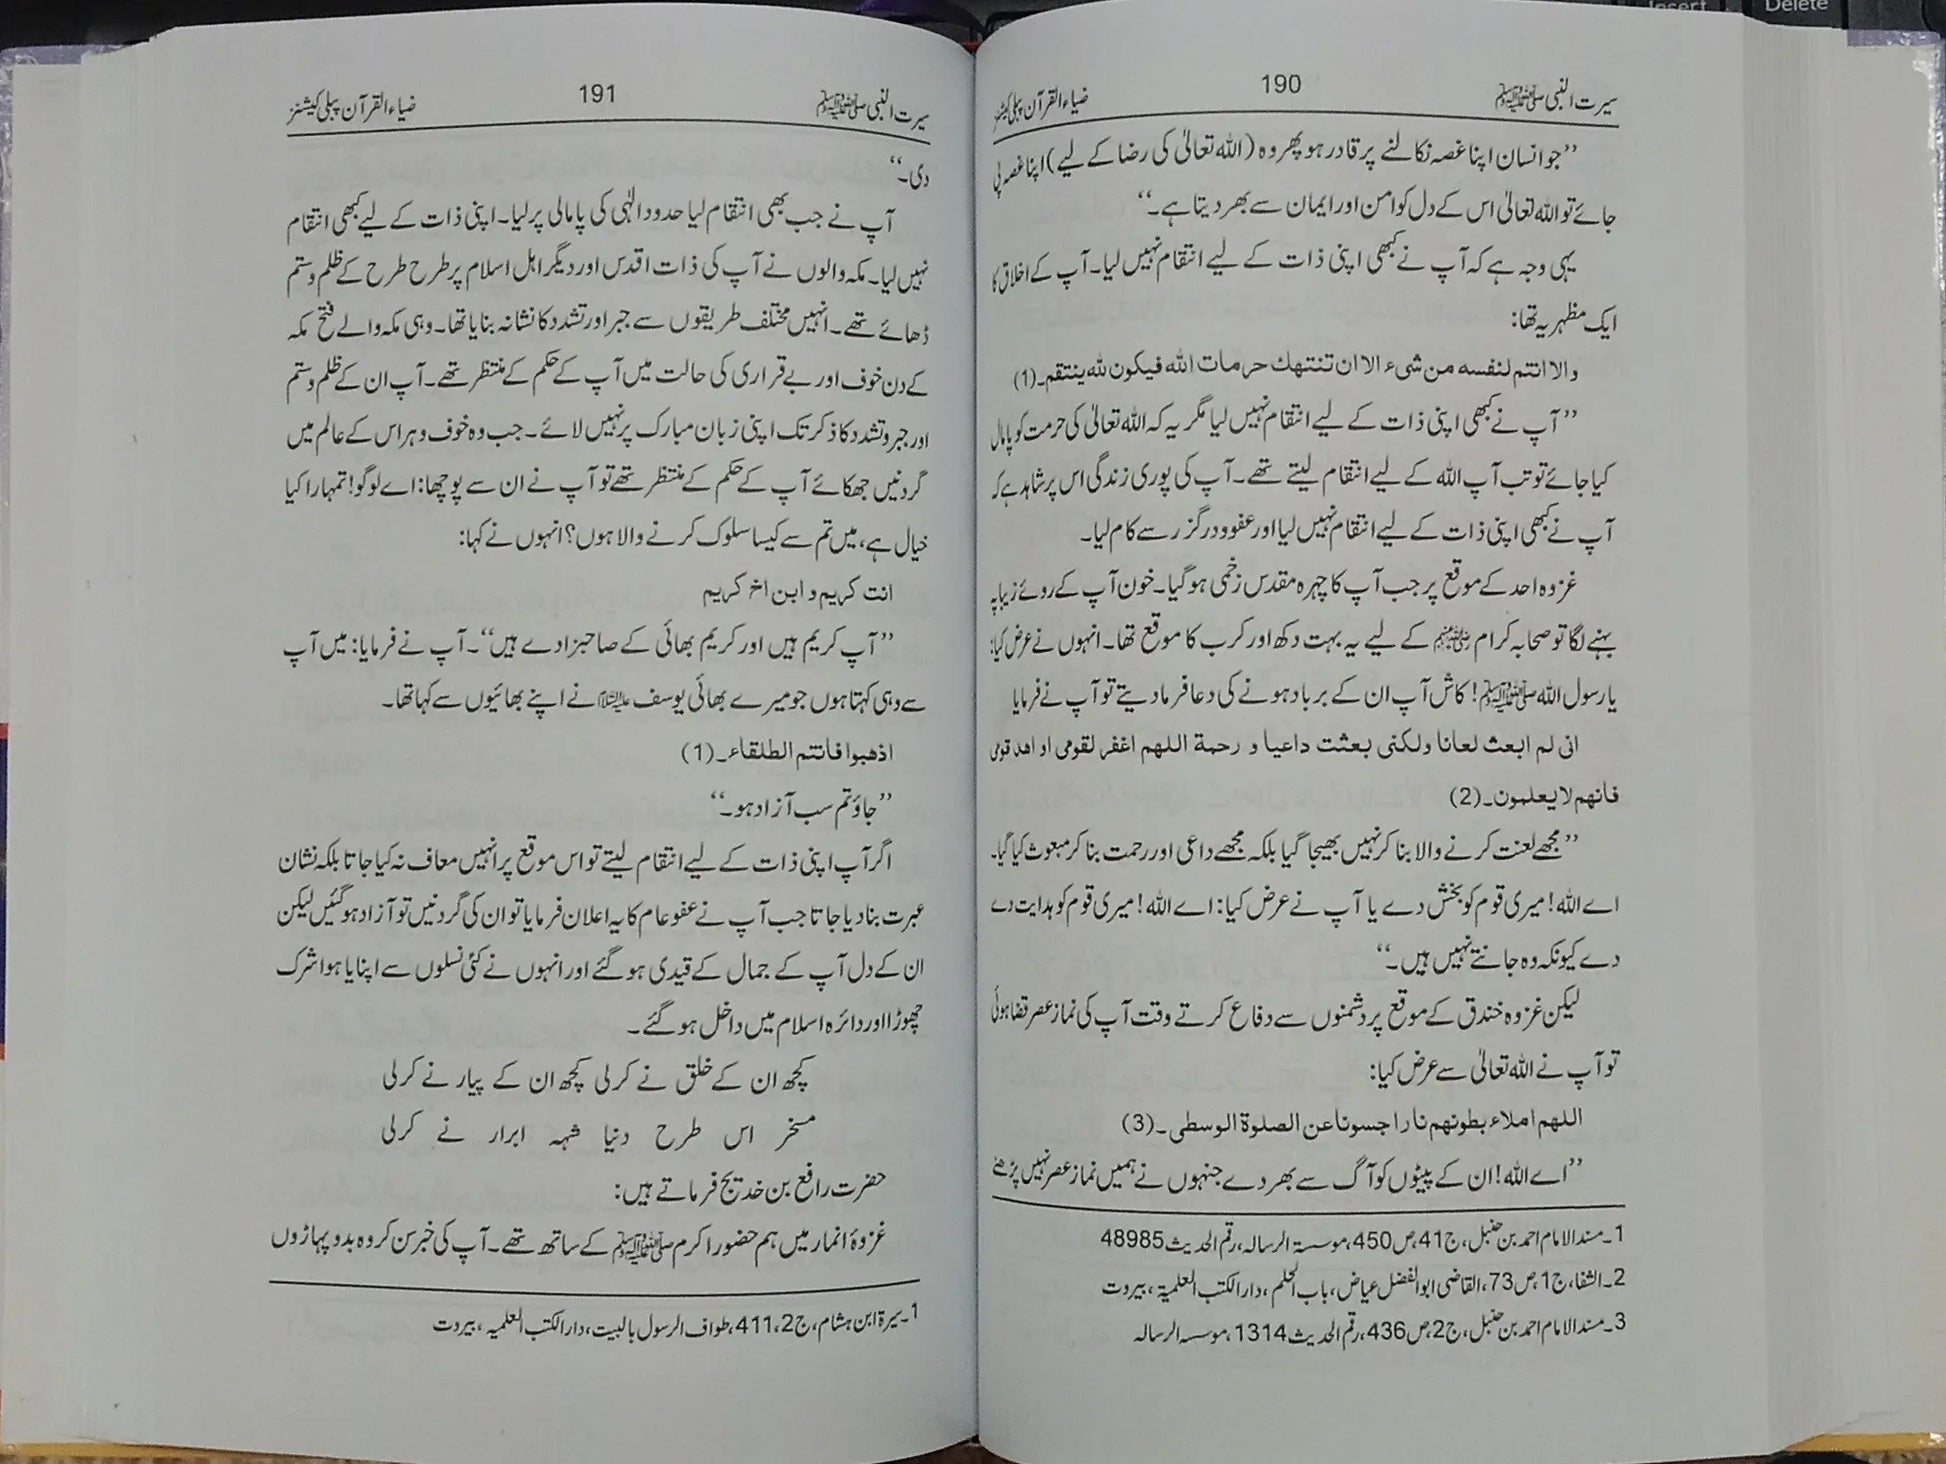 سیرت النبی ﷺ 190 ضیاء القرآن پبلی کیشنز
’’جو انسان اپنا غصہ نکالنے پر قادر ہو پھر وہ (اللہ تعالیٰ کی رضا کے لیے) اپنا غصہ پی
جائے تو اللہ تعالیٰ اس کے دل کو امن اور ایمان سے بھر دیتا ہے۔‘‘
یہی وجہ ہے کہ آپ نے کبھی اپنی ذات کے لیے انتقام نہیں لیا۔ آپ کے اخلاق کا
ایک مظہر یہ تھا:
والا انتم لنفسه من شیء الا ان تنتهك حرمات الله فیکون لله ینتقم۔(1)
’’آپ نے کبھی اپنی ذات کے لیے انتقام نہیں لیا مگر یہ کہ اللہ تعالیٰ کی حرمت کو پامال
کیا جائے تو تب آپ اللہ کے لیے انتقام لیتے تھے۔ آپ کی پوری زندگی اس پر شاہد ہے کہ
آپ نے کبھی اپنی ذات کے لیے انتقام نہیں لیا اور عفو و درگزر سے کام لیا۔
غزوہ احد کے موقع پر جب آپ کا چہرہ مقدس زخمی ہو گیا۔ خون آپ کے روئے زیبا پہ
بہنے لگا تو صحابہ کرام رضی اللہ عنہم کے لیے یہ بہت دکھ اور کرب کا موقع تھا۔ انہوں نے عرض کیا:
یا رسول اللہ ﷺ! کاش آپ ان کے برباد ہونے کی دعا فرما دیتے تو آپ نے فرمایا
انی لم ابعث لعانا ولکنی بعثت داعیا و رحمة اللهم اغفر لقومی او اهد قومی
فانهم لا یعلمون۔(2)
’’مجھے لعنت کرنے والا بنا کر نہیں بھیجا گیا بلکہ مجھے داعی اور رحمت بنا کر مبعوث کیا گیا۔
اے اللہ! میری قوم کو بخش دے یا آپ نے عرض کیا: اے اللہ! میری قوم کو ہدایت دے
دے کیونکہ وہ جانتے نہیں ہیں۔‘‘
لیکن غزوہ خندق کے موقع پر دشمنوں سے دفاع کرتے وقت آپ کی نماز عصر قضا ہوئی
تو آپ نے اللہ تعالیٰ سے عرض کیا:
اللهم املاء بطونهم نارا جسونا عن الصلوة الوسطی۔(3)
’’اے اللہ! ان کے پیٹوں کو آگ سے بھر دے جنہوں نے ہمیں نماز عصر نہیں پڑھنے
1۔مسند الامام احمد بن حنبل، ج41، ص450، موسسۃ الرسالہ، رقم الحدیث48985
2۔الشفا، ج1، ص73، القاضی ابوالفضل عیاض، باب الحلم، دارالکتب العلمیۃ، بیروت
3۔مسند الامام احمد بن حنبل، ج2، ص436، رقم الحدیث1314، موسسہ الرسالہ
سیرت النبی ﷺ 191 ضیاء القرآن پبلی کیشنز
دی۔‘‘
آپ نے جب بھی انتقام لیا حدود الٰہی کی پامالی پر لیا۔ اپنی ذات کے لیے کبھی انتقام
نہیں لیا۔ مکہ والوں نے آپ کی ذات اقدس اور دیگر اہل اسلام پر طرح طرح کے ظلم و ستم
ڈھائے تھے۔ انہیں مختلف طریقوں سے جبر اور تشدد کا نشانہ بنایا تھا۔ وہی مکہ والے فتح مکہ
کے دن خوف اور بے قراری کی حالت میں آپ کے حکم کے منتظر تھے۔ آپ ان کے ظلم و ستم
اور جبر و تشدد کا ذکر تک اپنی زبان مبارک پر نہیں لائے۔ جب وہ خوف و ہراس کے عالم میں
گردنیں جھکائے آپ کے حکم کے منتظر تھے تو آپ نے ان سے پوچھا: اے لوگو! تمہارا کیا
خیال ہے، میں تم سے کیسا سلوک کرنے والا ہوں؟ انہوں نے کہا:
انت کریم و ابن اخ کریم
’’آپ کریم ہیں اور کریم بھائی کے صاحبزادے ہیں‘‘۔ آپ نے فرمایا: میں آپ
سے وہی کہتا ہوں جو میرے بھائی یوسف علیہ السلام نے اپنے بھائیوں سے کہا تھا۔
اذهبوا فانتم الطلقاء۔(1)
’’جاؤ تم سب آزاد ہو۔‘‘
اگر آپ اپنی ذات کے لیے انتقام لیتے تو اس موقع پر انہیں معاف نہ کیا جاتا بلکہ نشان
عبرت بنا دیا جاتا جب آپ نے عفو عام کا یہ اعلان فرمایا تو ان کی گردنیں تو آزاد ہو گئیں لیکن
ان کے دل آپ کے جمال کے قیدی ہو گئے اور انہوں نے کئی نسلوں سے اپنایا ہوا شرک
چھوڑا اور دائرہ اسلام میں داخل ہو گئے۔
کچھ ان کے خلق نے کر لی کچھ ان کے پیار نے کر لی
مسخر اس طرح دنیا شہہ ابرار نے کر لی
حضرت رافع بن خدیج فرماتے ہیں:
غزوۂ انمار میں ہم حضور اکرم ﷺ کے ساتھ تھے۔ آپ کی خبر سن کر وہ بدو پہاڑوں
1۔سیرۃ ابن ہشام، ج2، 411، طواف الرسول بالبیت، دارالکتب العلمیہ، بیروت
Insert
Delete